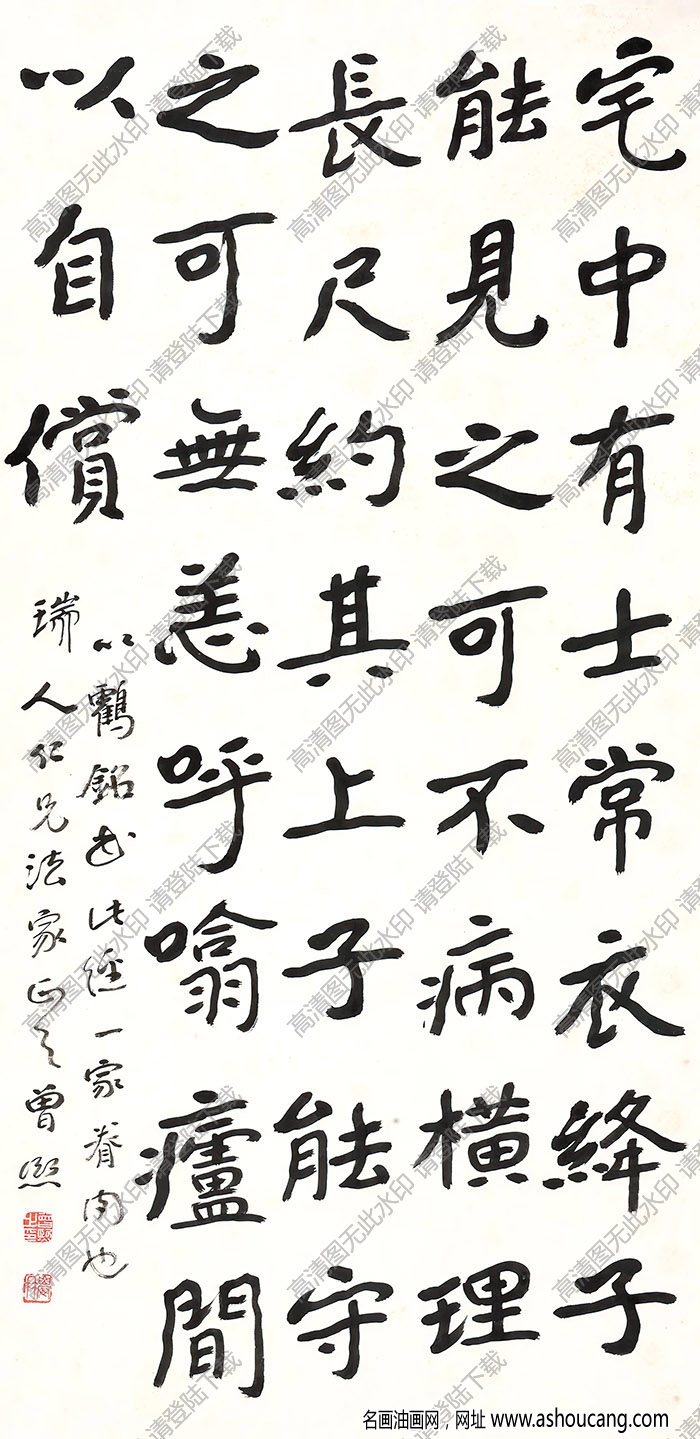 宅中有士常衣絳子
能見之可不病橫理
長尺約其上子能守
之可無恙呼噏廬間
以自償
以鸖銘書此經一家眷肉也
瑞人仁兄法家正之曾熙
高清图无此水印 请登陆下载
名画油画网，网址 www.ashoucang.com